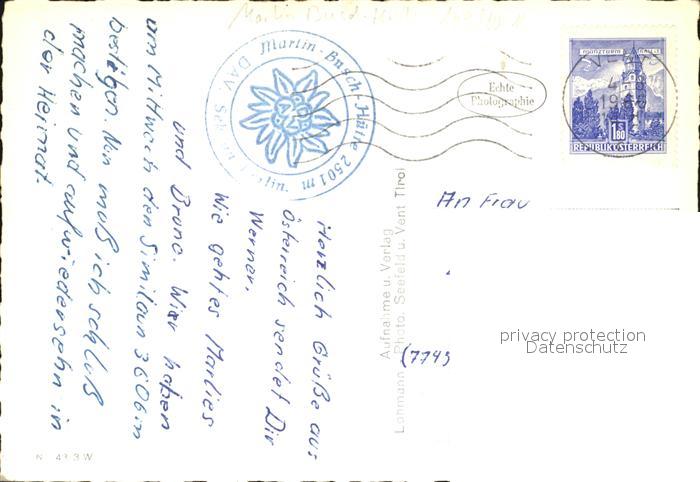 Herzlich Grüße aus
Österreich sendet Dir
Werner.
Wie geht es Marlies
und Bruno. Wier haben
am Mittwoch den Similaun 3606m
bestigen. Nun muß ich schluß
machen und auf wiedersehn in
der Heimat.
Martin-Busch-Hütte 2501 m
DAV. Sekt. Berlin.
Echte
Photographie
MÜNZTURM HALL
1.80
REPUBLIK ÖSTERREICH
VENT
An Frau
Aufnahme u. Verlag
Lohmann Photo. Seefeld u. Vent Tirol
(7749
privacy protection
Datenschutz
N 43 3 W